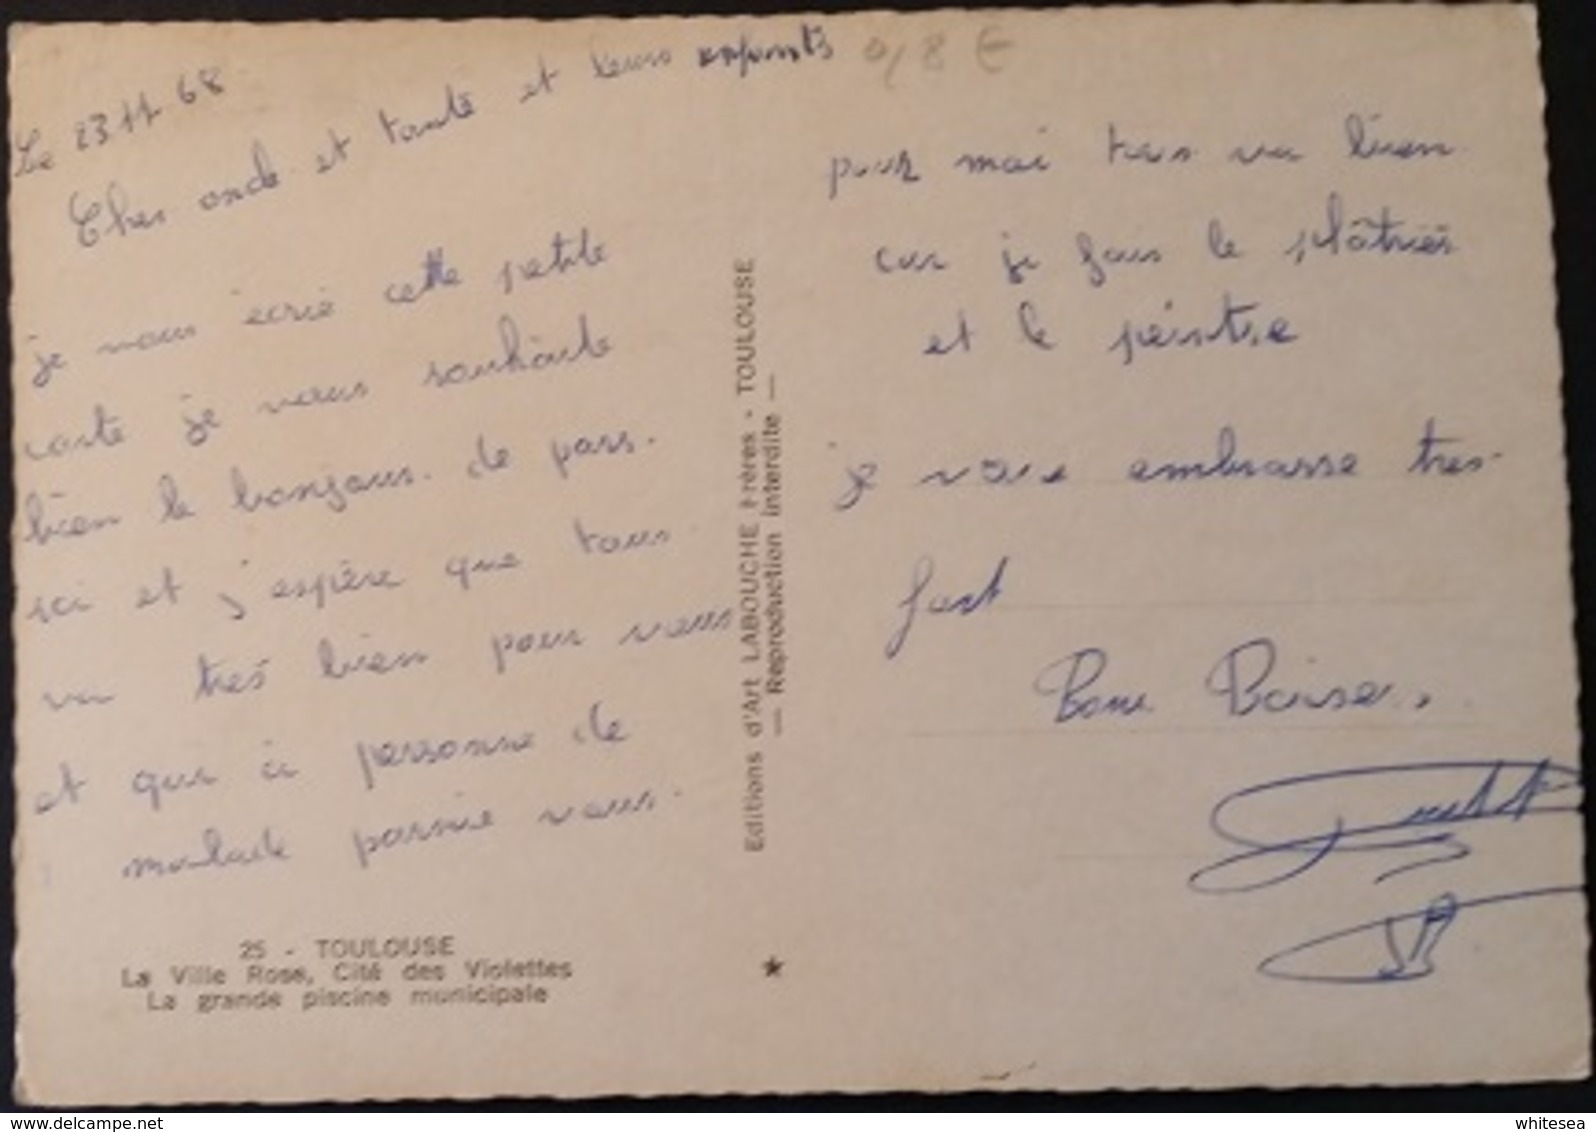 Le 23 11 68
Cher oncle et tante et leurs enfants
0,8 €
je vous écrie cette petite
carte je vous souhaite
bien le bonjour. de pass.
ici et j'espère que tous
va tres bien pour vous
et que à personne de
malade parmie vous.
25 - TOULOUSE
La Ville Rose, Cité des Violettes
La grande piscine municipale
Editions d'Art LABOUCHE Frères - TOULOUSE
— Reproduction interdite —
pour moi tres va bien
car je fais le plâtrier
et le peintre
je vous embrasse tres
fort
Bons Baiser.
delcampe.net
whitesea